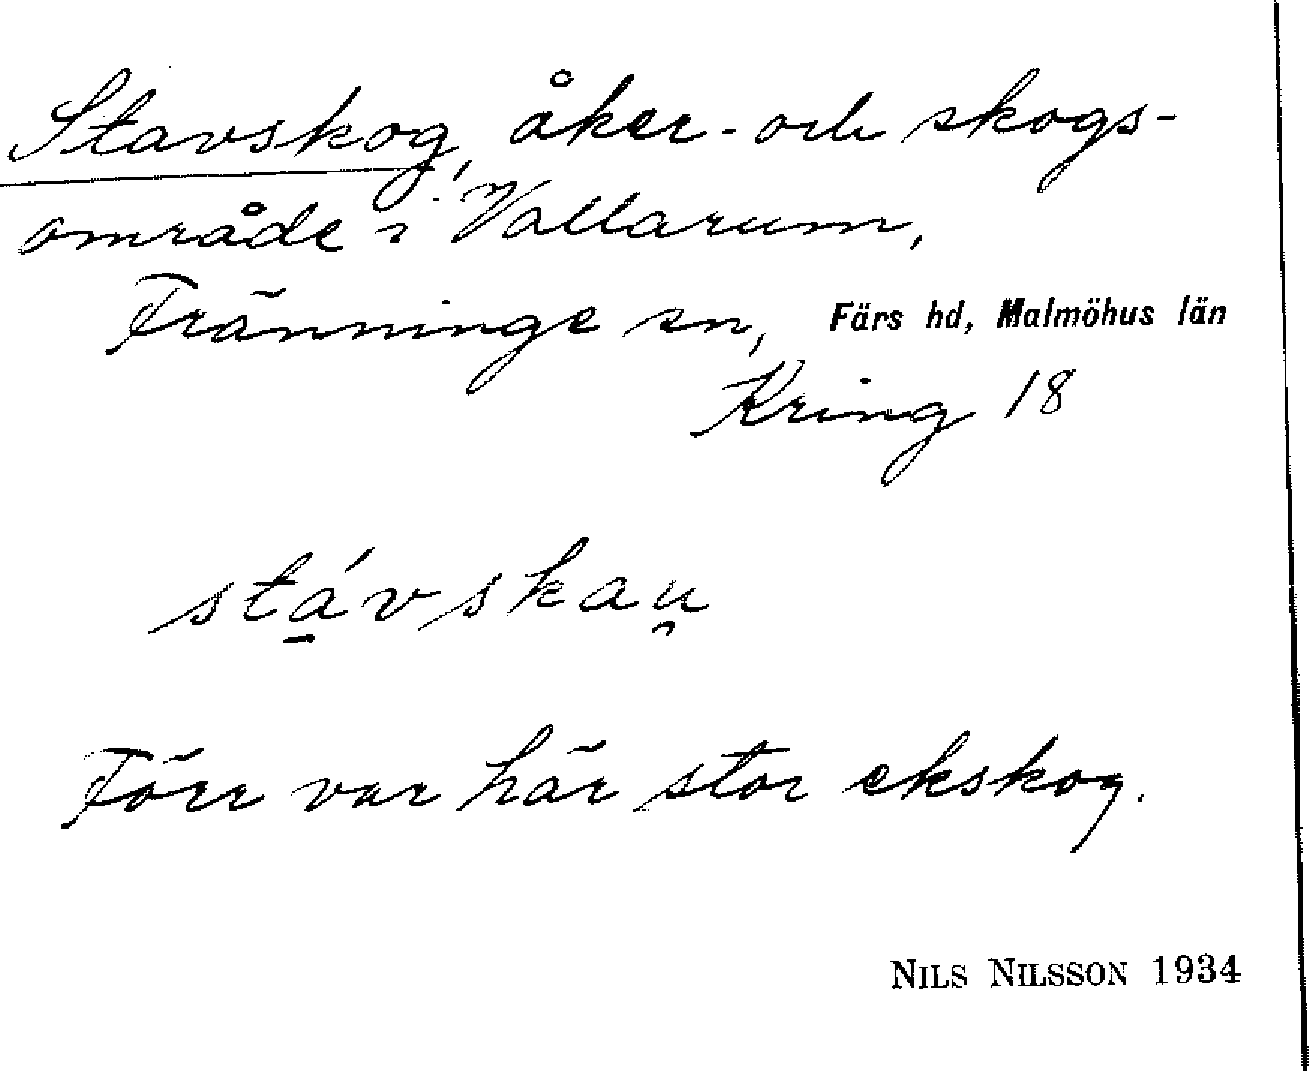 Stavskog, åker- och skogs-
område i Vallarum,
Fränninge sn, Färs hd, Malmöhus län
Kring 18
stá̱vskau̯
Förr var här stor ekskog.
NILS NILSSON 1934